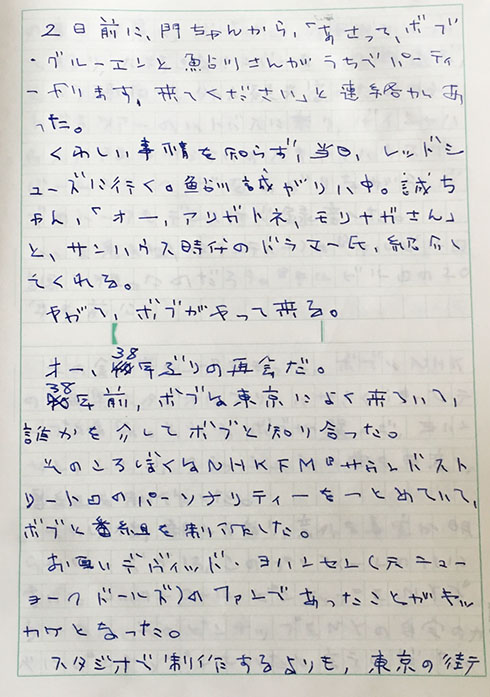 2日前に、門ちゃんから、「あさって、ボブ
・グルーエンと鮎川さんがうちでパーティ
ーやります。来てください」と連絡があ
った。
くわしい事情を知らず、当日、レッドシ
ューズに行く。鮎川誠がリハ中。誠ち
ゃん、「オー、アリガトネ、モリナガさん」
と、サンハウス時代のドラマー氏、紹介し
てくれる。
やがて、ボブがやって来る。
オー、38年ぶりの再会だ。
38年前、ボブは東京によく来ていて、
誰かを介してボブと知り合った。
そのころぼくはNHKFM『サウンドスト
リート』のパーソナリティーをつとめていて、
ボブと番組を制作した。
お互いデヴィッド・ヨハンセン(元ニュー
ヨークドールズ)のファンであったことがキッ
カケとなった。
スタジオで制作するよりも、東京の街で